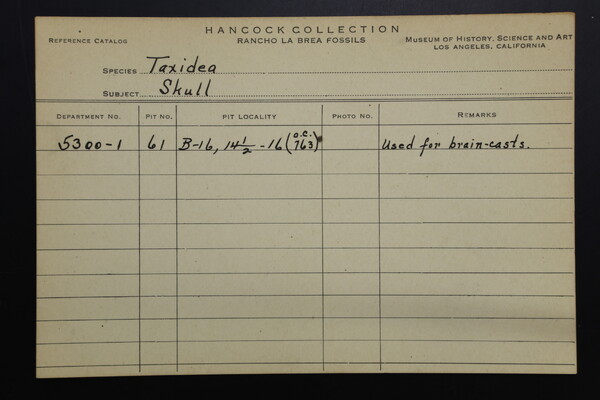 HANCOCK COLLECTION
REFERENCE CATALOG RANCHO LA BREA FOSSILS MUSEUM OF HISTORY, SCIENCE AND ART
LOS ANGELES, CALIFORNIA
SPECIES Taxidea
SUBJECT Skull
DEPARTMENT NO. PIT NO. PIT LOCALITY PHOTO NO. REMARKS
5300-1 61 B-16, 14 1/2 - 16 (O.C. 763) Used for brain-casts.